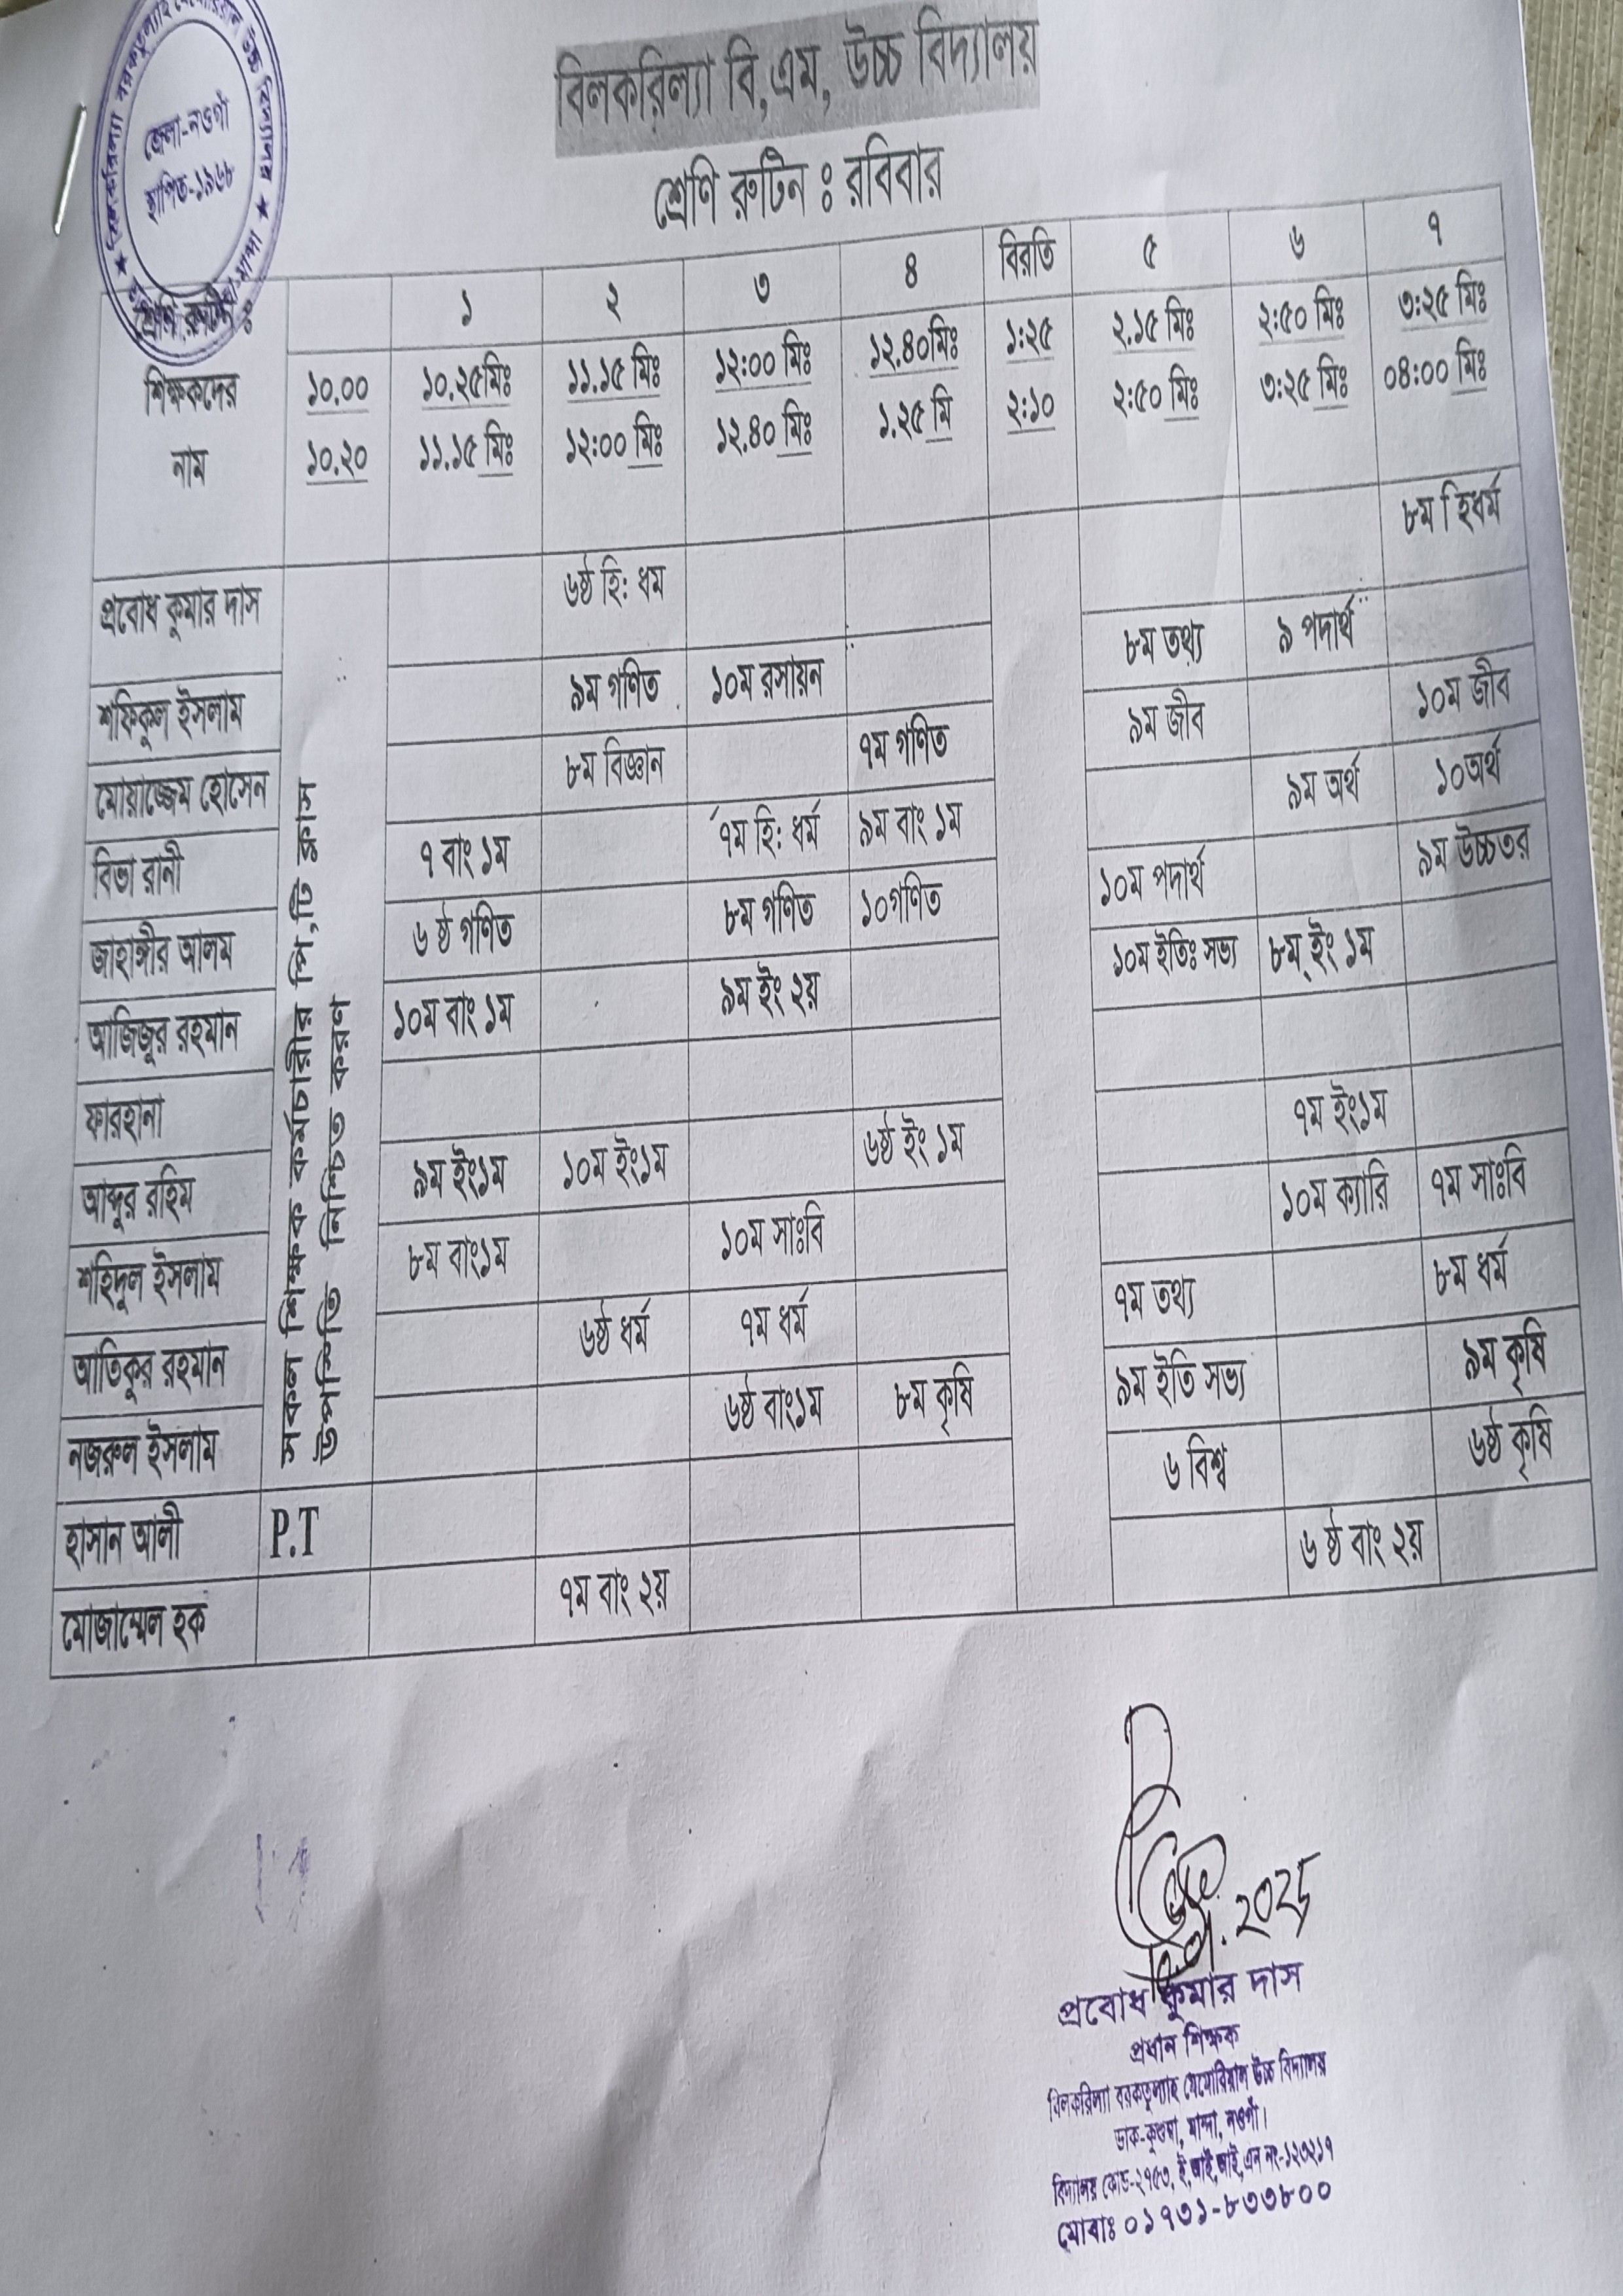 জেলা-নওগাঁ
স্থাপিত-১৯৬৮
বিলকরিল্যা বি,এম, উচ্চ বিদ্যালয়
শ্রেণি রুটিন ঃ রবিবার
শ্রেণি রুটিন ঃ ১ ২ ৩ ৪ বিরতি ৫ ৬ ৭
শিক্ষকদের ১০.০০ ১০.২৫মিঃ ১১.১৫ মিঃ ১২ঃ০০ মিঃ ১২.৪০মিঃ ১ঃ২৫ ২.১৫ মিঃ ২ঃ৫০ মিঃ ৩ঃ২৫ মিঃ
নাম ১০.২০ ১১.১৫ মিঃ ১২ঃ০০ মিঃ ১২.৪০ মিঃ ১.২৫ মি ২ঃ১০ ২ঃ৫০ মিঃ ৩ঃ২৫ মিঃ ০৪ঃ০০ মিঃ
সকল শিক্ষক কর্মচারীর পি,টি ক্লাস
উপস্থিতি নিশ্চিত করণ
প্রবোধ কুমার দাস ৬ষ্ঠ হি: ধম ৮ম হিধর্ম
শফিকুল ইসলাম ৯ম গণিত ১০ম রসায়ন ৮ম তথ্য ৯ পদার্থ
মোয়াজ্জেম হোসেন ৮ম বিজ্ঞান ৭ম গণিত ৯ম জীব ১০ম জীব
বিভা রানী ৭ বাং ১ম ৭ম হি: ধর্ম ৯ম বাং ১ম ৯ম অর্থ ১০অর্থ
জাহাঙ্গীর আলম ৬ ষ্ঠ গণিত ৮ম গণিত ১০গণিত ১০ম পদার্থ ৯ম উচ্চতর
আজিজুর রহমান ১০ম বাং ১ম ৯ম ইং ২য় ১০ম ইতিঃ সভ্য ৮ম্ ইং ১ম
ফারহানা
আব্দুর রহিম ৯ম ইং১ম ১০ম ইং১ম ৬ষ্ঠ ইং ১ম ৭ম ইং১ম
শহিদুল ইসলাম ৮ম বাং১ম ১০ম সাঃবি ১০ম ক্যারি ৭ম সাঃবি
আতিকুর রহমান ৬ষ্ঠ ধর্ম ৭ম ধর্ম ৭ম তথ্য ৮ম ধর্ম
নজরুল ইসলাম ৬ষ্ঠ বাং১ম ৮ম কৃষি ৯ম ইতি সভ্য ৯ম কৃষি
হাসান আলী P.T ৬ বিশ্ব ৬ষ্ঠ কৃষি
মোজাম্মেল হক ৭ম বাং ২য় ৬ ষ্ঠ বাং ২য়
প্রবোধ কুমার দাস
প্রধান শিক্ষক
বিলকরিল্যা বরকতুল্যাহ মেমোরিয়াল উচ্চ বিদ্যালয়
মান্দা, নওগাঁ।
বিদ্যালয় কোড-২৭৫৩, ই,আই,আই,এন নং-১২৩২১৭
মোবাঃ ০১৭৩১-৮৩৩৮০০